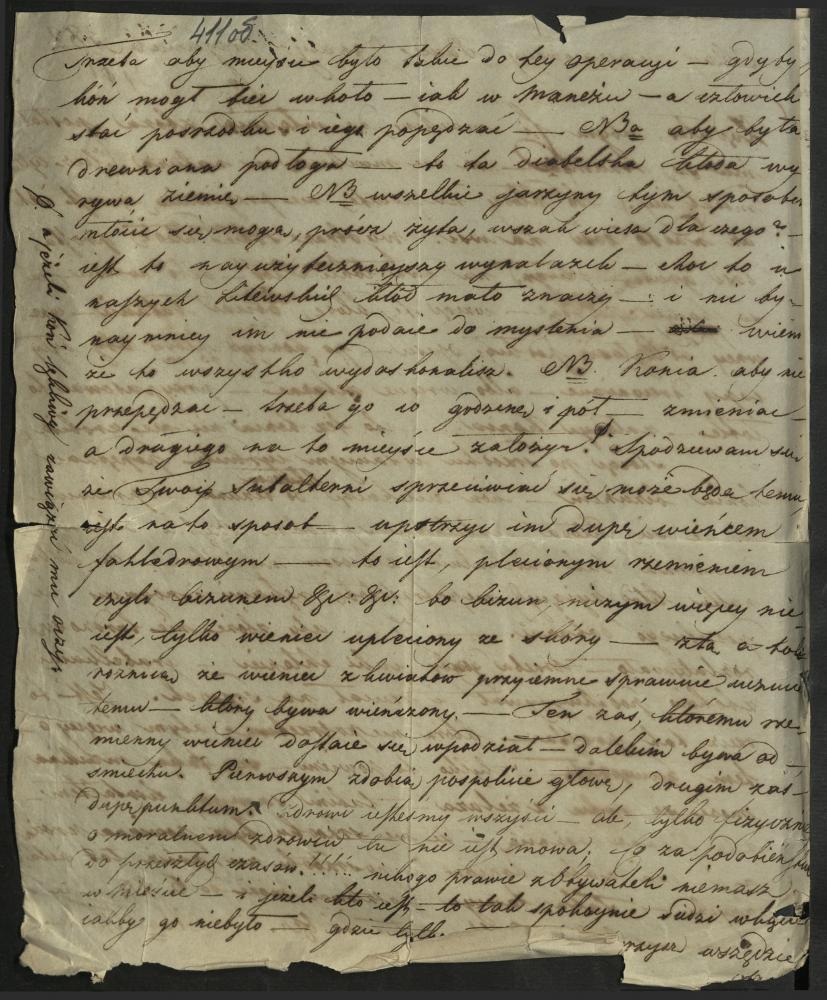 41108
Trzeba aby mieysce było takie do tey operacyi — gdyby
koń mogł biec wkoło — iak w Maneżu — a człowiek
stać posrzodku i iego popędzać — NBa aby była
drewniana podłoga — bo ta diabelska kłoda wy
rywa ziemię — NB wszelkie jarzyny tym sposobem
młócić się mogą, prócz żyta, wszak wiesz dla czego? —
iest to nayużytecznieyszy wynalazek — choć to u
naszych Litewskich kłód mało znaczy — : i nic by-
naymniey im nie podaie do myslenia — wiem
że to wszystko wydoskonalisz. NB. Konia aby nie
przepędzac — trzeba go w godzinę i pół — zmieniac —
a drugiego na to mieysce założyć. Spodziewam się
że Twoi Subalterni sprzeciwiać się może będą temu,
iest na to sposob — upstrzyc im dupę wieńcem
fahledrowym — to iest, plecionym rzemieniem
czyli bizunem &c: &c: bo bizun niczym więcey nie
iest, tylko wieniec upleciony ze skóry — z tą a tolko
rożnicą że wieniec z kwiatów przyiemne sprawuie uczucie
temu — który bywa wieńczony. — Ten zaś, któremu rze-
mienny wieniec dostaie się wpodział — dalekim bywa od —
smiechu. Pierwszym zdobią pospolicie głowę, drugim zaś —
dupę punktum. Zdrowi iestesmy wszyscy — ale, tylko fizycznie
o moralnem zdrowiu tu nie iest mowa. Co za podobieństwo
do przeszłych czasów!!!!! nikogo prawie z Obywateli niemasz
w mieście — i jeżeli kto iest — to tak spokoynie siedzi
iakby go niebyło — gdzie — wszędzie
a jeżeli Koń szkliwy zawiązać mu oczy